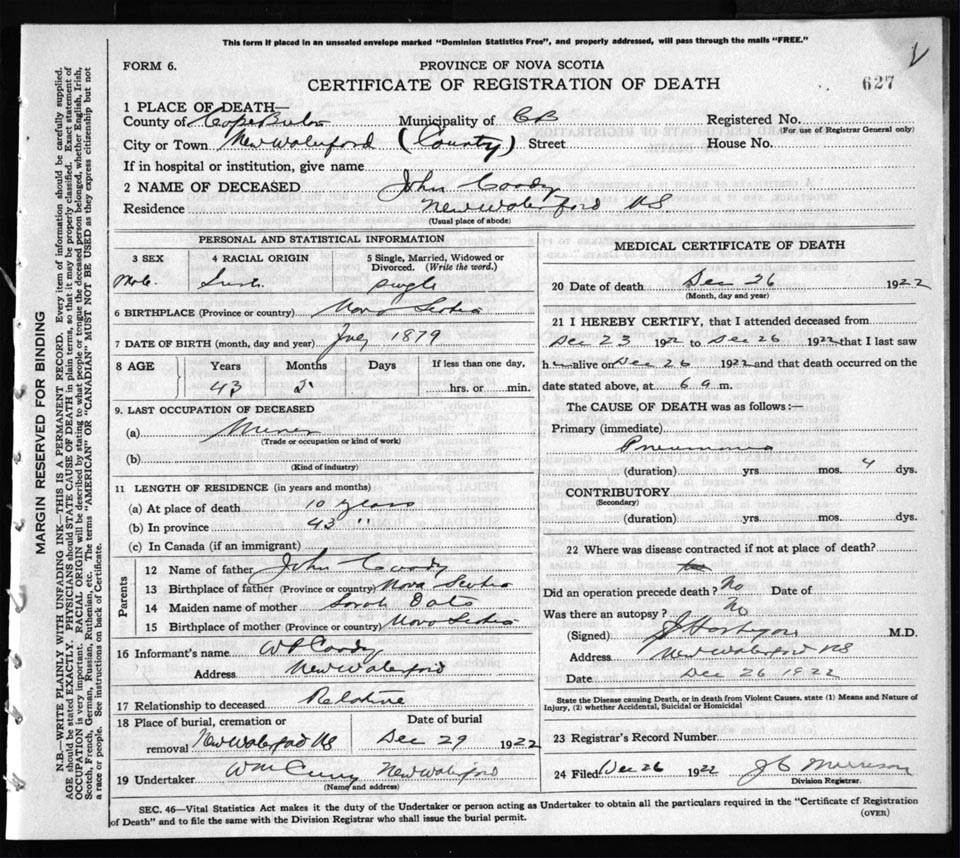 This form if placed in an unsealed envelope marked "Dominion Statistics Free", and properly addressed, will pass through the mails "FREE."
FORM 6.
PROVINCE OF NOVA SCOTIA
CERTIFICATE OF REGISTRATION OF DEATH
627
1 PLACE OF DEATH—
County of Cape Breton Municipality of CB Registered No.
(For use of Registrar General only)
City or Town New Waterford (County) Street House No.
If in hospital or institution, give name
2 NAME OF DECEASED John Coody
Residence New Waterford NS.
(Usual place of abode)
PERSONAL AND STATISTICAL INFORMATION
3 SEX 4 RACIAL ORIGIN 5 Single, Married, Widowed or Divorced. (Write the word.)
Male. single
6 BIRTHPLACE (Province or country) Nova Scotia
7 DATE OF BIRTH (month, day and year) 1879
8 AGE Years Months Days If less than one day,
43 5 hrs. or min.
9. LAST OCCUPATION OF DECEASED
(a) Miner
(Trade or occupation or kind of work)
(b)
(Kind of industry)
11 LENGTH OF RESIDENCE (in years and months)
(a) At place of death 10 years
(b) In province 43 "
(c) In Canada (if an immigrant)
Parents
12 Name of father John Coody
13 Birthplace of father (Province or country) Nova Scotia
14 Maiden name of mother Sarah
15 Birthplace of mother (Province or country) Nova Scotia
16 Informant's name Coody
Address New Waterford
17 Relationship to deceased Relative
18 Place of burial, cremation or removal New Waterford NS
Date of burial
Dec 29 1922
19 Undertaker Wm Curry New Waterford
(Name and address)
MEDICAL CERTIFICATE OF DEATH
20 Date of death Dec 26 1922
(Month, day and year)
21 I HEREBY CERTIFY, that I attended deceased from
Dec 23 1922 to Dec 26 1922 that I last saw
h alive on Dec 26 1922 and that death occurred on the
date stated above, at 6 a m.
The CAUSE OF DEATH was as follows:—
Primary (immediate)
Pneumonia
(duration) yrs. mos. 4 dys.
CONTRIBUTORY
(Secondary)
(duration) yrs. mos. dys.
22 Where was disease contracted if not at place of death?
Did an operation precede death? No Date of
Was there an autopsy? No
(Signed) M.D.
Address New Waterford NS
Date Dec 26 1922
State the Disease causing Death, or in death from Violent Causes, state (1) Means and Nature of
Injury, (2) whether Accidental, Suicidal or Homicidal
23 Registrar's Record Number
24 Filed Dec 26 1922 J C Morrison
Division Registrar.
SEC. 46—Vital Statistics Act makes it the duty of the Undertaker or person acting as Undertaker to obtain all the particulars required in the "Certificate of Registration
of Death" and to file the same with the Division Registrar who shall issue the burial permit.
(OVER)
MARGIN RESERVED FOR BINDING
N.B.—WRITE PLAINLY WITH UNFADING INK—THIS IS A PERMANENT RECORD. Every item of information should be carefully supplied.
AGE should be stated EXACTLY. PHYSICIANS should STATE CAUSE OF DEATH in plain terms, so that it may be properly classified. Exact statement of
OCCUPATION is very important. RACIAL ORIGIN will be described by stating to what people or tongue the deceased person belonged, whether English, Irish,
Scotch, French, German, Russian, Ruthenian, etc. The terms "AMERICAN" or "CANADIAN" MUST NOT BE USED as they express citizenship but not
a race or people. See instructions on back of Certificate.